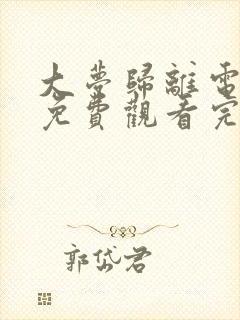 大夢歸離電
免費觀看完
郭岱君